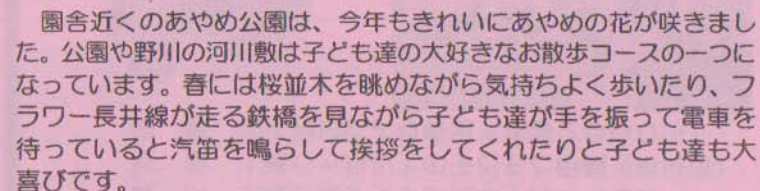 園舎近くのあやめ公園は、今年もきれいにあやめの花が咲きまし
た。公園や野川の河川敷は子ども達の大好きなお散歩コースの一つに
なっています。春には桜並木を眺めながら気持ちよく歩いたり、フ
ラワー長井線が走る鉄橋を見ながら子ども達が手を振って電車を
待っていると汽笛を鳴らして挨拶をしてくれたりと子ども達も大
喜びです。